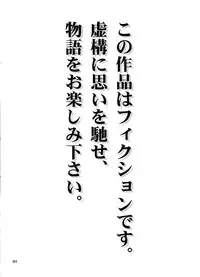 この作品はフィクションです。
虚構に思いを馳せ、
物語をお楽しみ下さい。